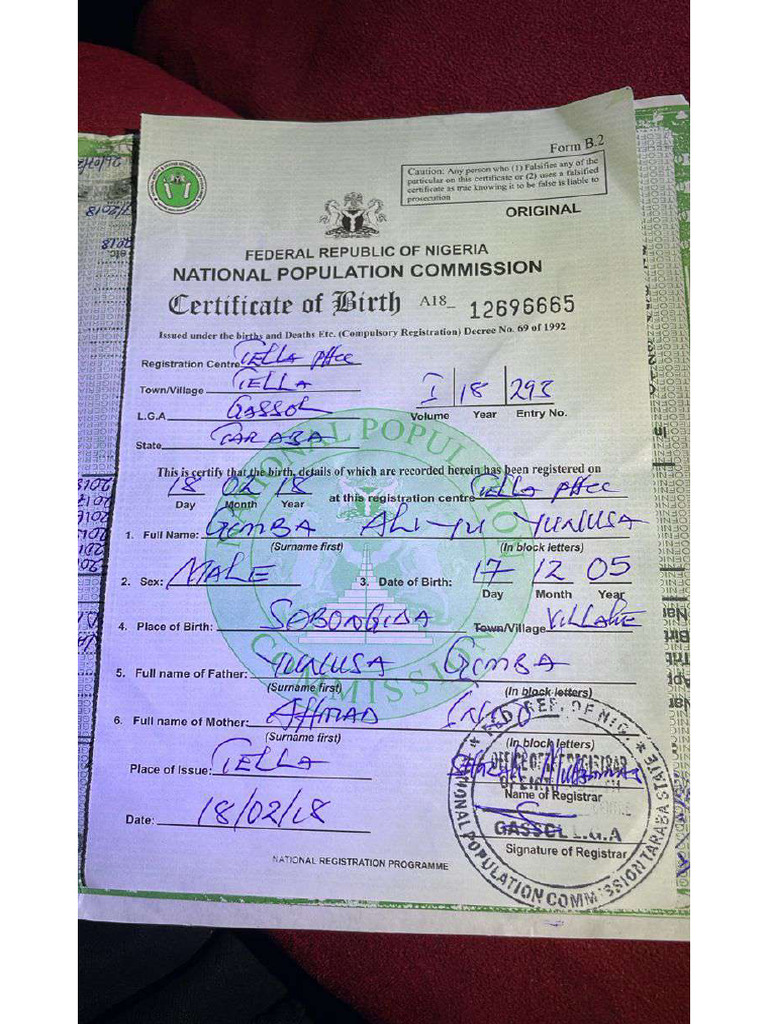 Form B.2
Caution: Any person who (1) Falsifies any of the
particular on this certificate or (2) uses a falsified
certificate as true knowing it to be false is liable to
prosecution
ORIGINAL
FEDERAL REPUBLIC OF NIGERIA
NATIONAL POPULATION COMMISSION
Certificate of Birth A18_ 12696665
Issued under the births and Deaths Etc. (Compulsory Registration) Decree No. 69 of 1992
Registration Centre TELLA PHCC
Town/Village TELLA
I 18 293
L.G.A GASSOL
Volume Year Entry No.
State TARABA
This is certify that the birth, details of which are recorded herein has been registered on
18 02 18 at this registration centre TELLA PHCC
Day Month Year
1. Full Name: GIMBA ALIYU YUNUSA
(Surname first) (In block letters)
2. Sex: MALE 3. Date of Birth: 17 12 05
Day Month Year
4. Place of Birth: SOBONGIDA Town/Village VILLAGE
5. Full name of Father: YUNUSA GIMBA
(Surname first) (In block letters)
6. Full name of Mother: AHMAD INDO
(Surname first) (In block letters)
Place of Issue: TELLA
Name of Registrar
Date: 18/02/18
Signature of Registrar
NATIONAL REGISTRATION PROGRAMME
FED. REP. OF NIG.
OFFICE OF THE REGISTRAR
GASSOL L.G.A
NATIONAL POPULATION COMMISSION TARABA STATE
NATIONAL POPULATION COMMISSION